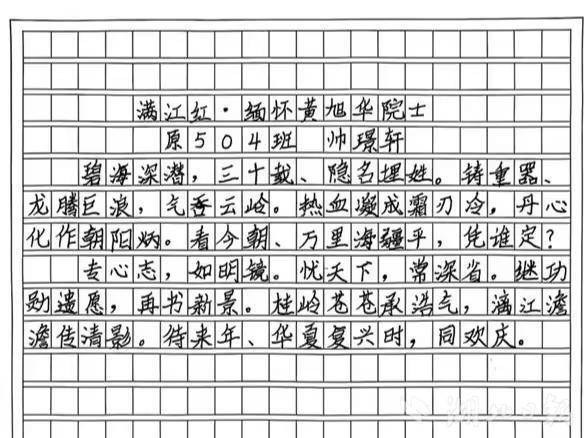 满江红·缅怀黄旭华院士
原504班 帅璟轩
碧海深潜，三十载、隐名埋姓。铸重器、
龙腾巨浪，气吞云岭。热血凝成霜刃冷，丹心
化作朝阳炳。看今朝、万里海疆平，凭谁定？
专心志，如明镜。忧天下，常深省。继功
勋遗愿，再书新景。桂岭苍苍承浩气，漓江澹
澹传清影。待来年、华夏复兴时，同欢庆。
湖北日报